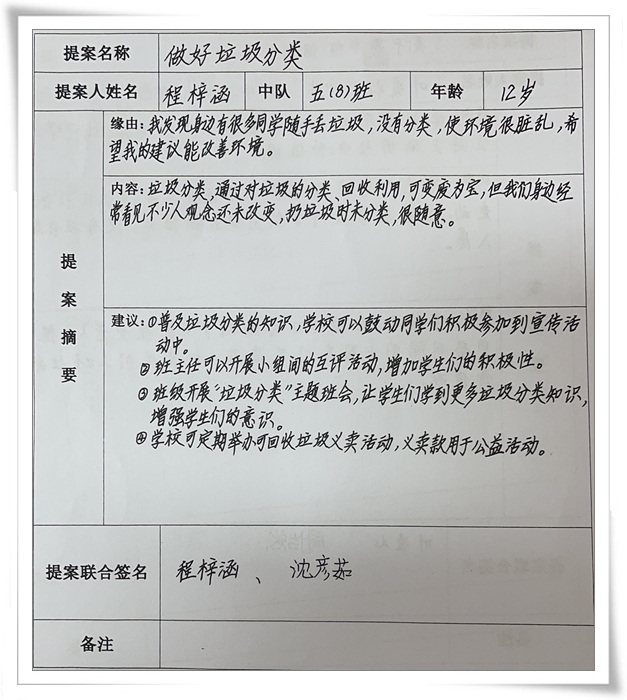 提案名称 做好垃圾分类
提案人姓名 程梓涵 中队 五(8)班 年龄 12岁
提案摘要
缘由:我发现身边有很多同学随手丢垃圾,没有分类,使环境很脏乱,希
望我的建议能改善环境。
内容:垃圾分类,通过对垃圾的分类、回收利用,可变废为宝,但我们身边经
常看见不少人观念还未改变,扔垃圾时未分类,很随意。
建议:①普及垃圾分类的知识,学校可以鼓动同学们积极参加到宣传活
动中。
②班主任可以开展小组间的互评活动,增加学生们的积极性。
③班级开展"垃圾分类"主题班会,让学生们学到更多垃圾分类知识,
增强学生们的意识。
④学校可定期举办可回收垃圾义卖活动,义卖款用于公益活动。
提案联合签名 程梓涵、沈彦茹
备注